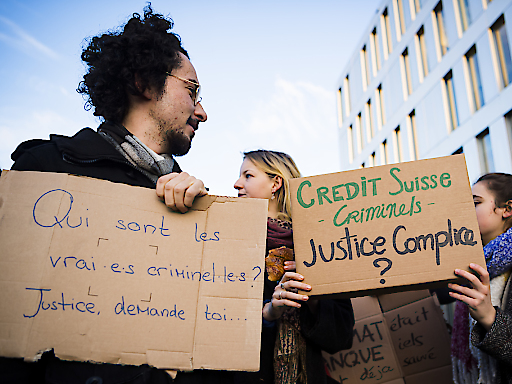 Qui sont les
vrai·e·s criminel·le·s?
Justice, demande toi...
CREDIT SUISSE
- CRIMINELS -
JUSTICE COMPLICE
?
MAT
était
NQUE
iels
déjà
sauvé